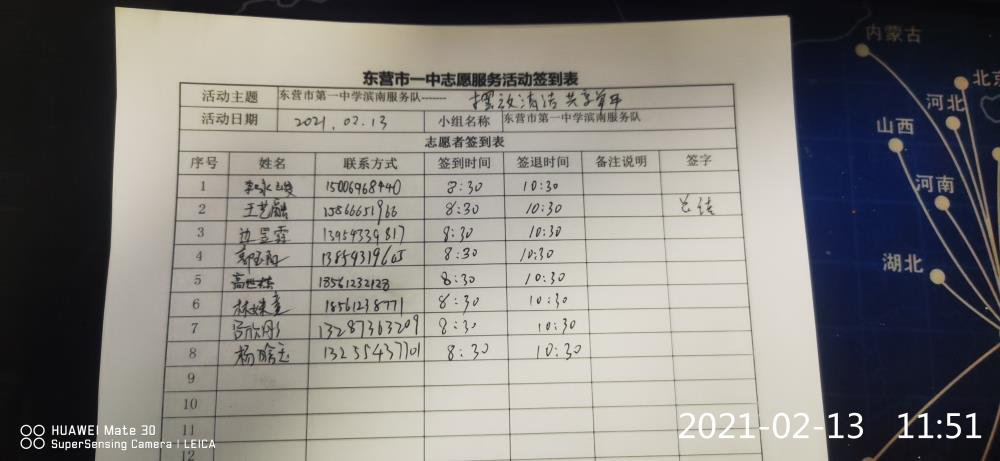 内蒙古
北京
河北
山西
河南
湖北
东营市一中志愿服务活动签到表
活动主题 东营市第一中学滨南服务队------ 摆放清洁共享单车
活动日期 2021.02.13 小组名称 东营市第一中学滨南服务队
志愿者签到表
序号 姓名 联系方式 签到时间 签退时间 备注说明 签字
1 15006968440 8:30 10:30
2 王艺融 15866651966 8:30 10:30
3 边昱霖 13954339817 8:30 10:30
4 13854319605 8:30 10:30
5 18561232128 8:30 10:30
6 18561238771 8:30 10:30
7 13287363209 8:30 10:30
8 13255437701 8:30 10:30
9
10
11
12
HUAWEI Mate 30
SuperSensing Camera | LEICA
2021-02-13 11:51